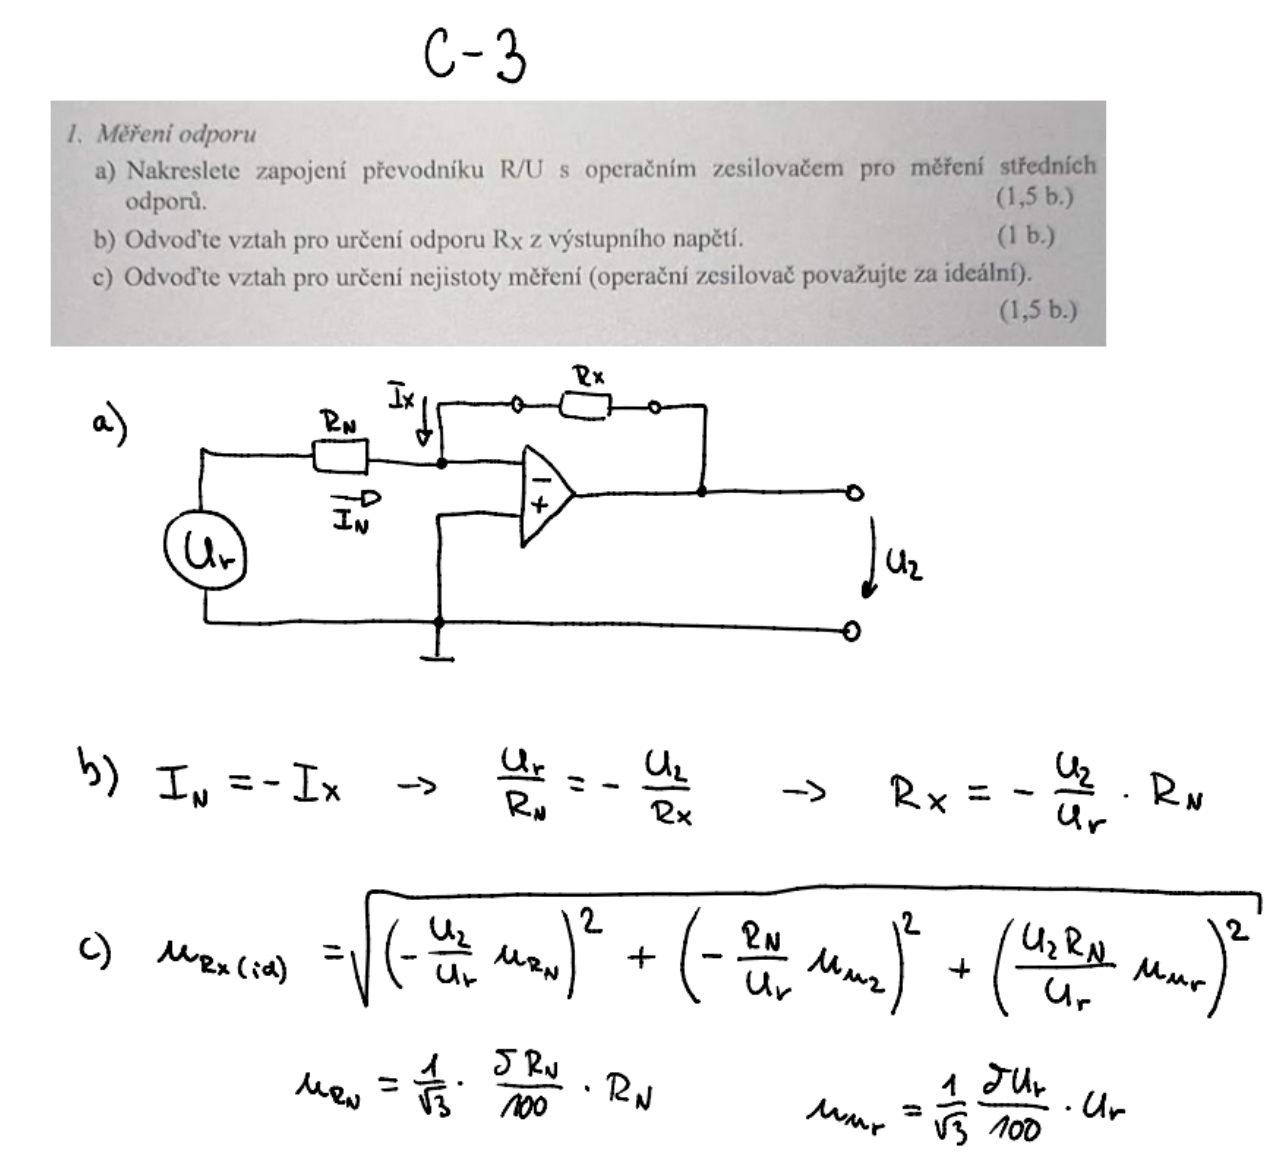 C-3
1. Měření odporu
a) Nakreslete zapojení převodníku R/U s operačním zesilovačem pro měření středních
odporů. (1,5 b.)
b) Odvoďte vztah pro určení odporu Rx z výstupního napětí. (1 b.)
c) Odvoďte vztah pro určení nejistoty měření (operační zesilovač považujte za ideální).
(1,5 b.)
a)
Rx
Ix
RN
IN
Ur
-
+
U2
b) IN = - Ix → Ur/RN = - U2/Rx → Rx = - U2/Ur · RN
c) uRx(id) = √((- U2/Ur uRN)² + (- RN/Ur uu2)² + (U2RN/Ur uur)²)
uRN = 1/√3 · δRN/100 · RN uur = 1/√3 δUr/100 · Ur